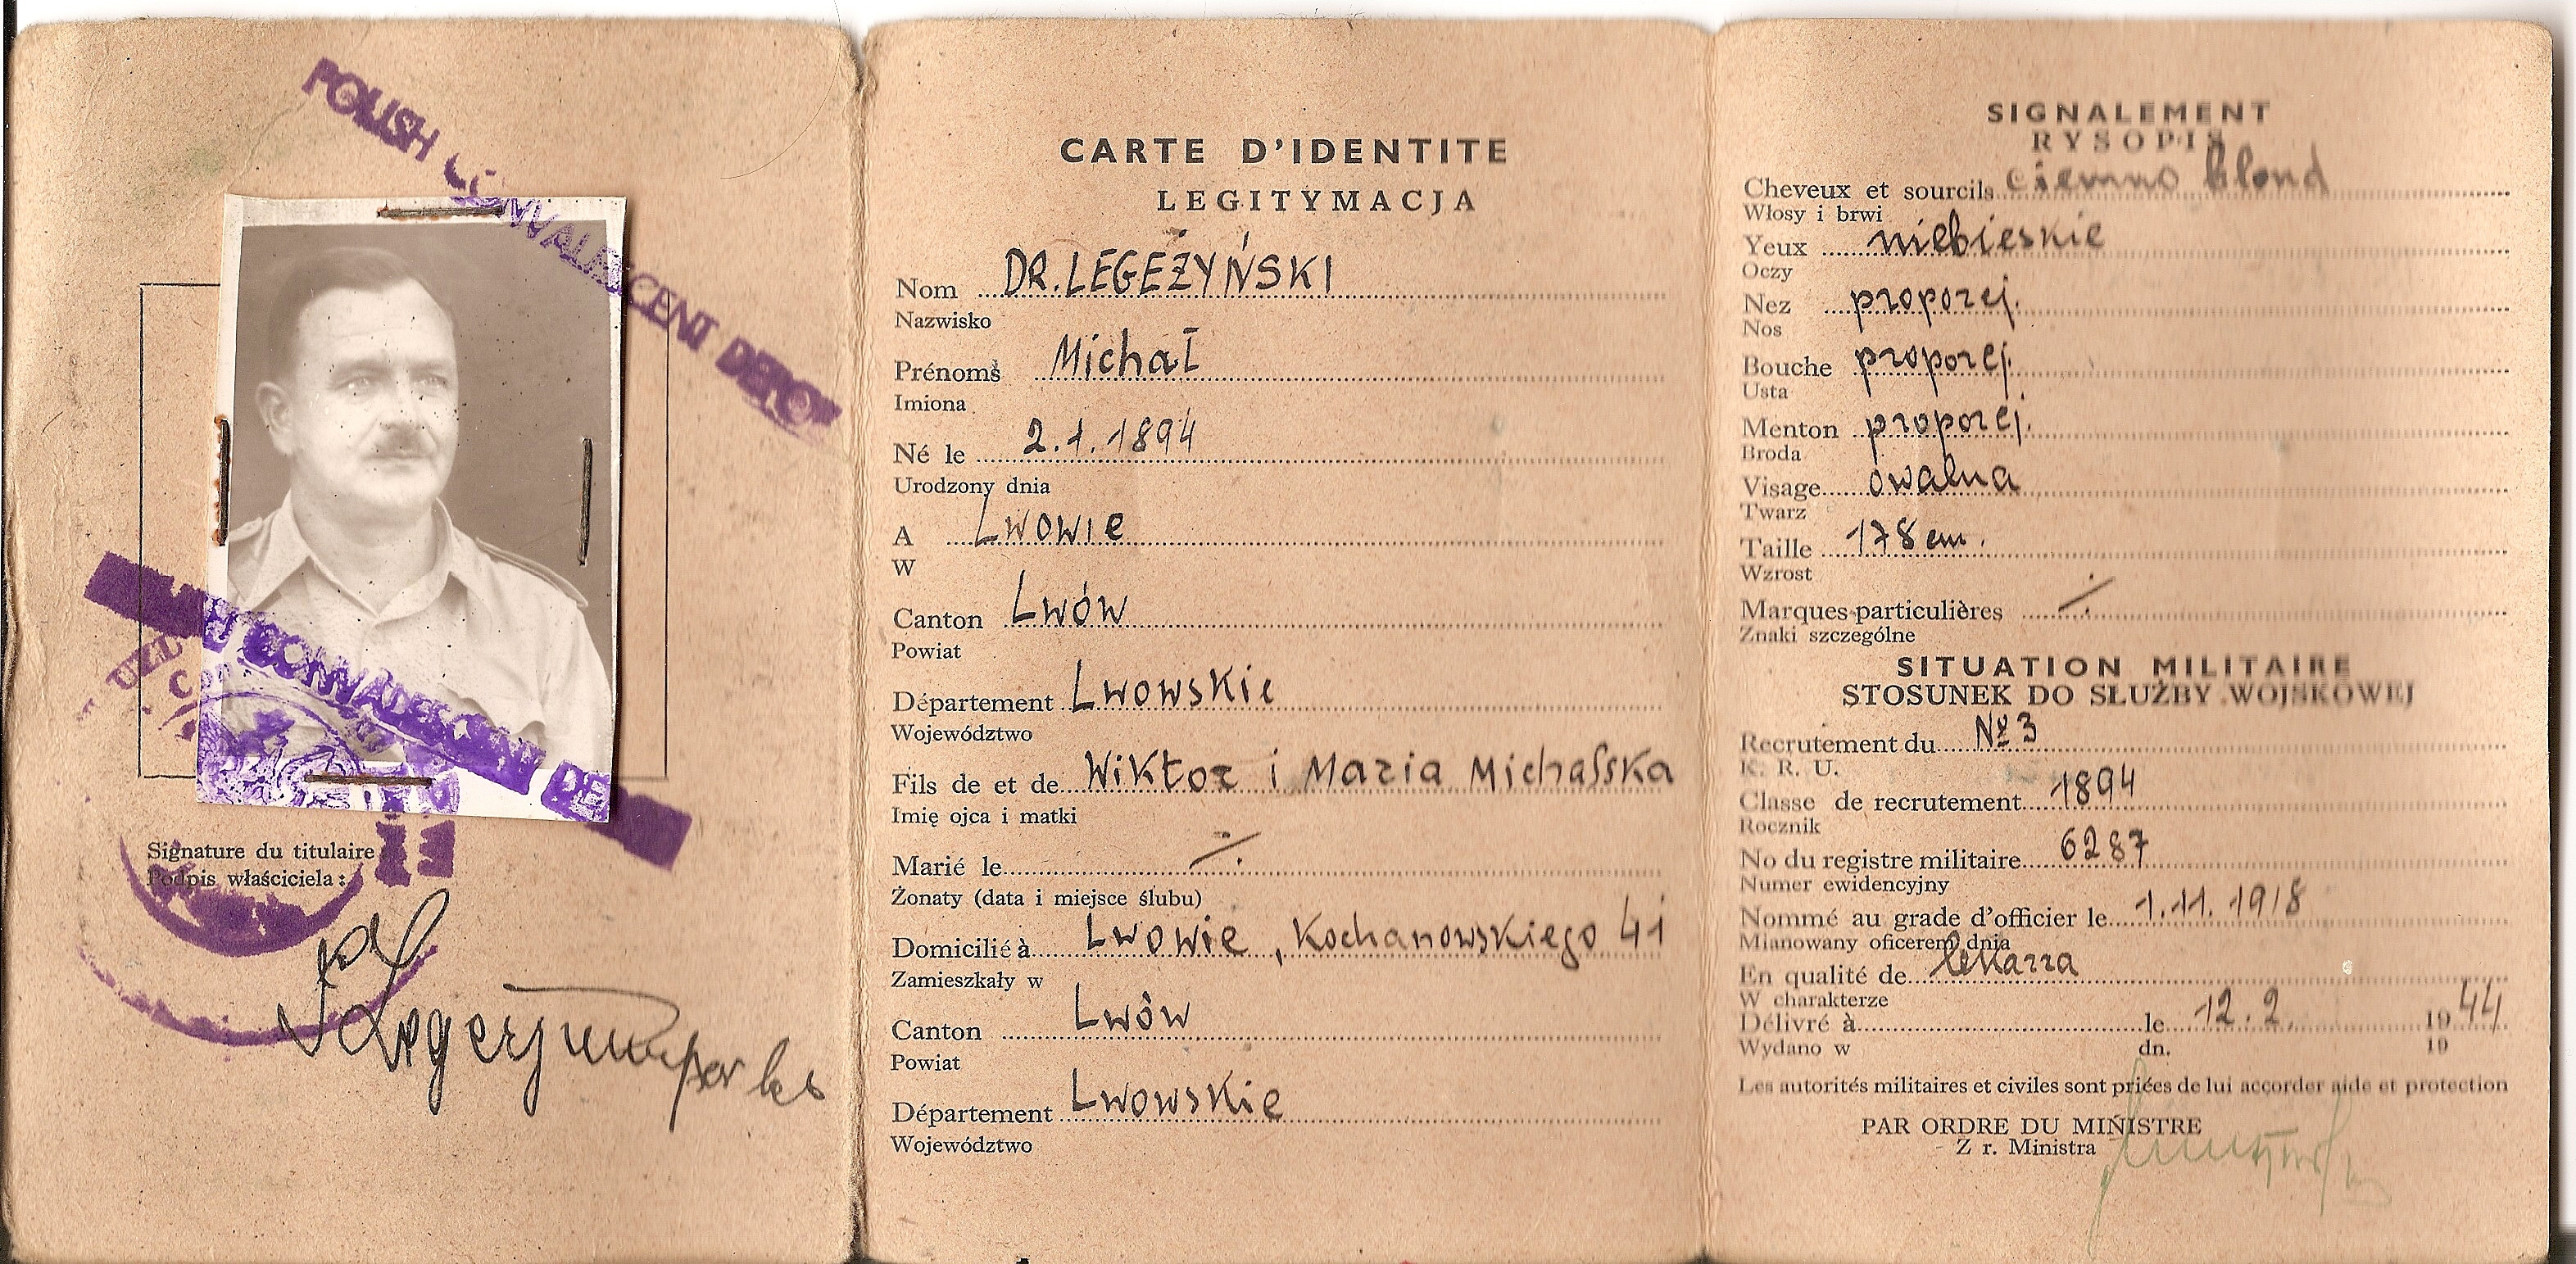 POLISH CONVALESCENT DEPOT
CONVALESCENT DE
Signature du titulaire
Podpis właściciela:
CARTE D'IDENTITE
LEGITYMACJA
Nom DR. LEGEŻYŃSKI
Nazwisko
Prénoms Michał
Imiona
Né le 2.1.1894
Urodzony dnia
A Lwowie
W
Canton Lwów
Powiat
Département Lwowskie
Województwo
Fils de et de Wiktor i Maria Michalska
Imię ojca i matki
Marié le ./.
Żonaty (data i miejsce ślubu)
Domicilié à Lwowie, Kochanowskiego 41
Zamieszkały w
Canton Lwów
Powiat
Département Lwowskie
Województwo
SIGNALEMENT
RYSOPIS
Cheveux et sourcils ciemno blond
Włosy i brwi
Yeux niebieskie
Oczy
Nez proporcj.
Nos
Bouche proporcj.
Usta
Menton proporcj.
Broda
Visage owalna
Twarz
Taille 178 cm.
Wzrost
Marques particulières ./.
Znaki szczególne
SITUATION MILITAIRE
STOSUNEK DO SŁUŻBY WOJSKOWEJ
Recrutement du № 3
K. R. U.
Classe de recrutement 1894
Rocznik
No du registre militaire 6287
Numer ewidencyjny
Nommé au grade d'officier le 1.11.1918
Mianowany oficerem dnia
En qualité de lekarza
W charakterze
Délivré à le 12.2. 1944
Wydano w dn. 19
Les autorités militaires et civiles sont priées de lui accorder aide et protection
PAR ORDRE DU MINISTRE
Z r. Ministra